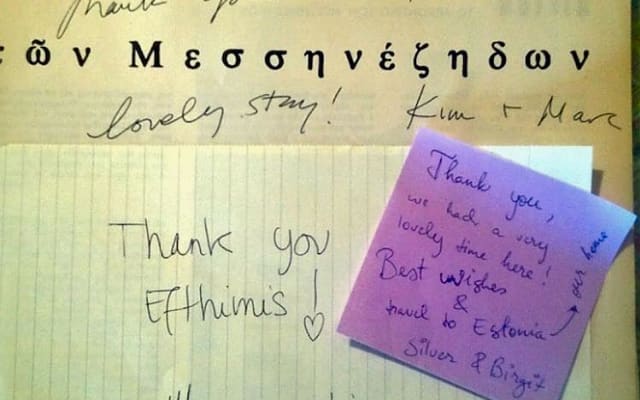 Thank yo
τῶν Μεσσηνέζηδων
lovely stay! Kim + Marc
Thank you
Efthimis! ♡
Thank you,
we had a very
lovely time here!
Best wishes
&
travel to Estonia → our home
Silver & Birgit